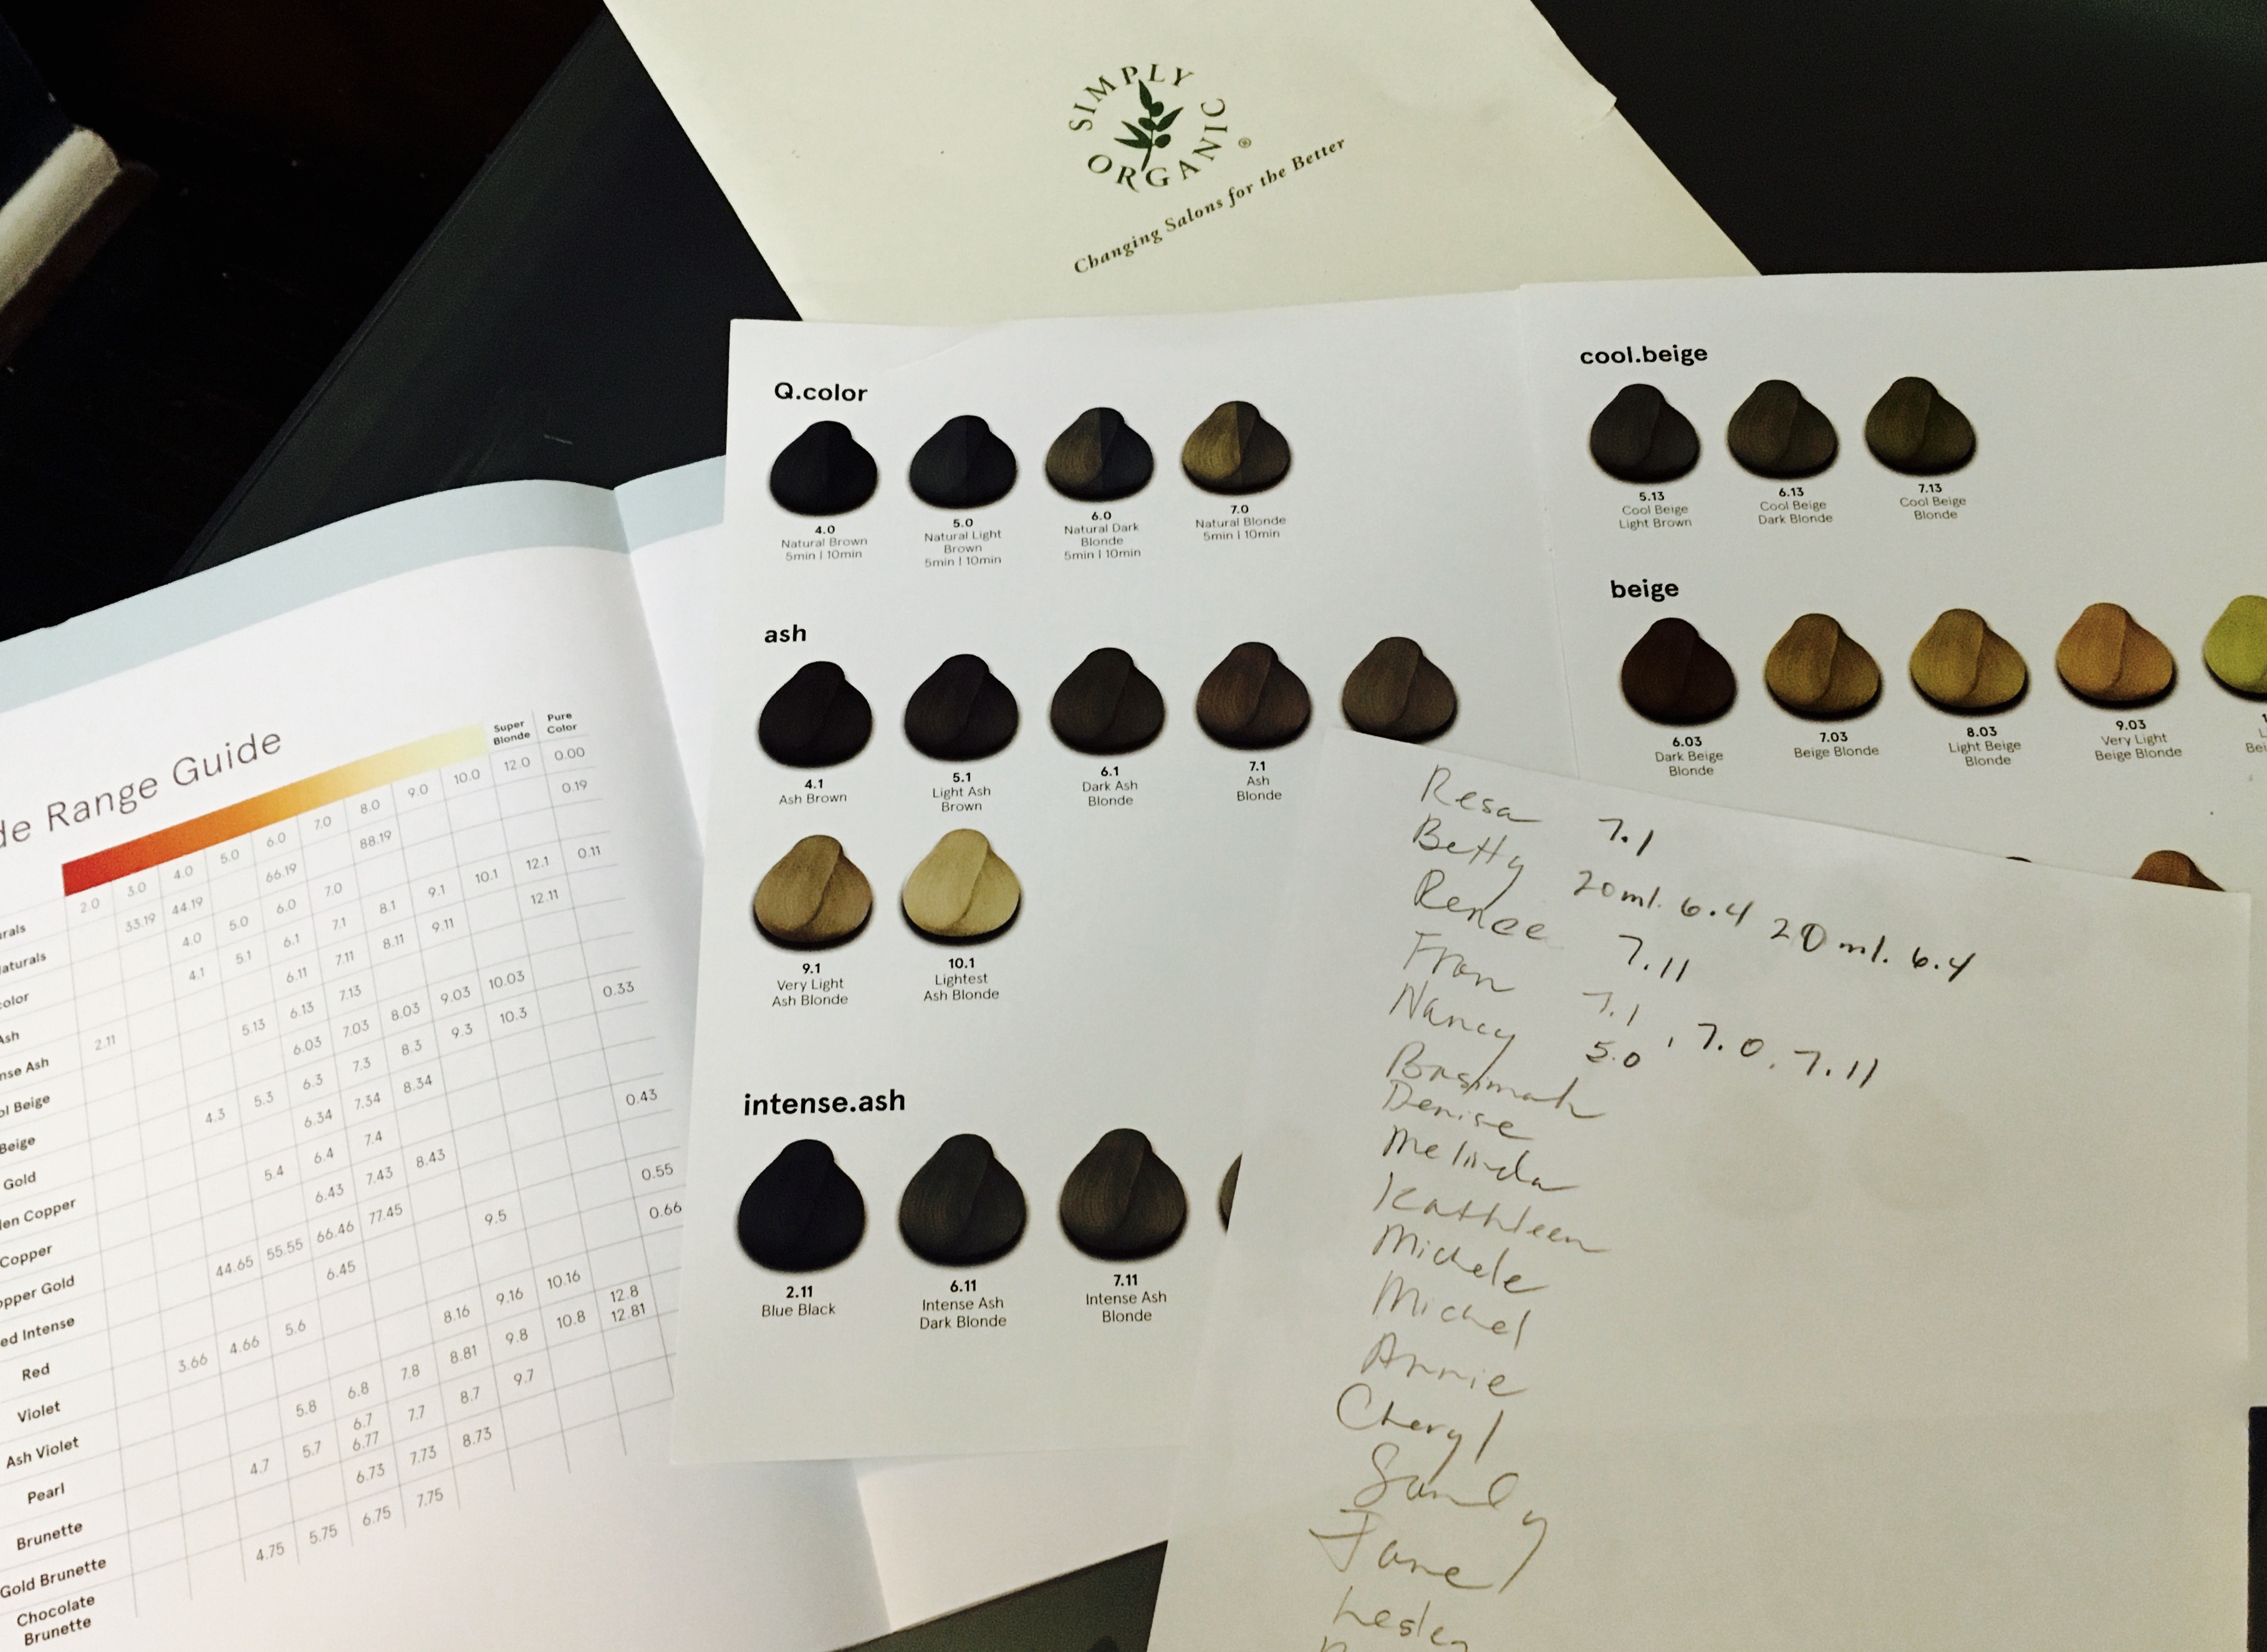 SIMPLY ORGANIC ®
Changing Salons for the Better
Q.color
4.0 5.0 6.0 7.0
Natural Brown Natural Light Natural Dark Natural Blonde
5min | 10min Brown Blonde 5min | 10min
5min | 10min 5min | 10min
ash
4.1 5.1 6.1 7.1
Ash Brown Light Ash Dark Ash Ash
Brown Blonde Blonde
9.1 10.1
Very Light Lightest
Ash Blonde Ash Blonde
intense.ash
2.11 6.11 7.11
Blue Black Intense Ash Intense Ash
Dark Blonde Blonde
cool.beige
5.13 6.13 7.13
Cool Beige Cool Beige Cool Beige
Light Brown Dark Blonde Blonde
beige
6.03 7.03 8.03 9.03
Dark Beige Beige Blonde Light Beige Very Light
Blonde Blonde Beige Blonde
Range Guide
Super Blonde Pure Color
2.0 3.0 4.0 5.0 6.0 7.0 8.0 9.0 10.0 12.0 0.00
33.19 44.19 66.19 88.19 0.19
4.0 5.0 6.0 7.0
Ash 4.1 5.1 6.1 7.1 8.1 9.1 10.1 12.1 0.11
Ash 2.11 6.11 7.11 8.11 9.11 12.11
Beige 5.13 6.13 7.13
Beige 6.03 7.03 8.03 9.03 10.03
Gold 4.3 5.3 6.3 7.3 8.3 9.3 10.3 0.33
Copper 6.34 7.34 8.34
Copper 5.4 6.4 7.4 0.43
Gold 6.43 7.43 8.43
Intense 44.65 55.55 66.46 77.45 0.55
Red 6.45 9.5 0.66
Violet 3.66 4.66 5.6
Ash Violet 8.16 9.16 10.16
Pearl 5.8 6.8 7.8 8.81 9.8 10.8 12.8 12.81
Brunette 4.7 5.7 6.7 6.77 7.7 8.7 9.7
Gold Brunette 6.73 7.73 8.73
Chocolate Brunette 4.75 5.75 6.75 7.75
Resa 7.1
Betty 20ml. 6.4 20 ml. 6.4
Renee 7.11
Fran 7.1, 7.0, 7.11
Nancy 5.0
Denise
Melinda
Kathleen
Michele
Michel
Annie
Cheryl
Sandy
Jane